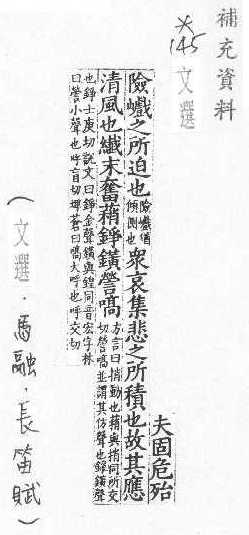 補充資料
145 文選
夫固危殆
險巇之所迫也險巇猶傾側也衆哀集悲之所積也故其應
清風也纖末奮蕱錚鐄謍嗃方言曰捎動也蕱與捎同所交切謍嗃並謂其仿聲也錚鐄聲
也錚士庚切説文曰錚金聲鐄與鍠同音宏字林
曰謍小聲也呼盲切埤蒼曰嗃大呼也呼交切
（文選．馬融．長笛賦）